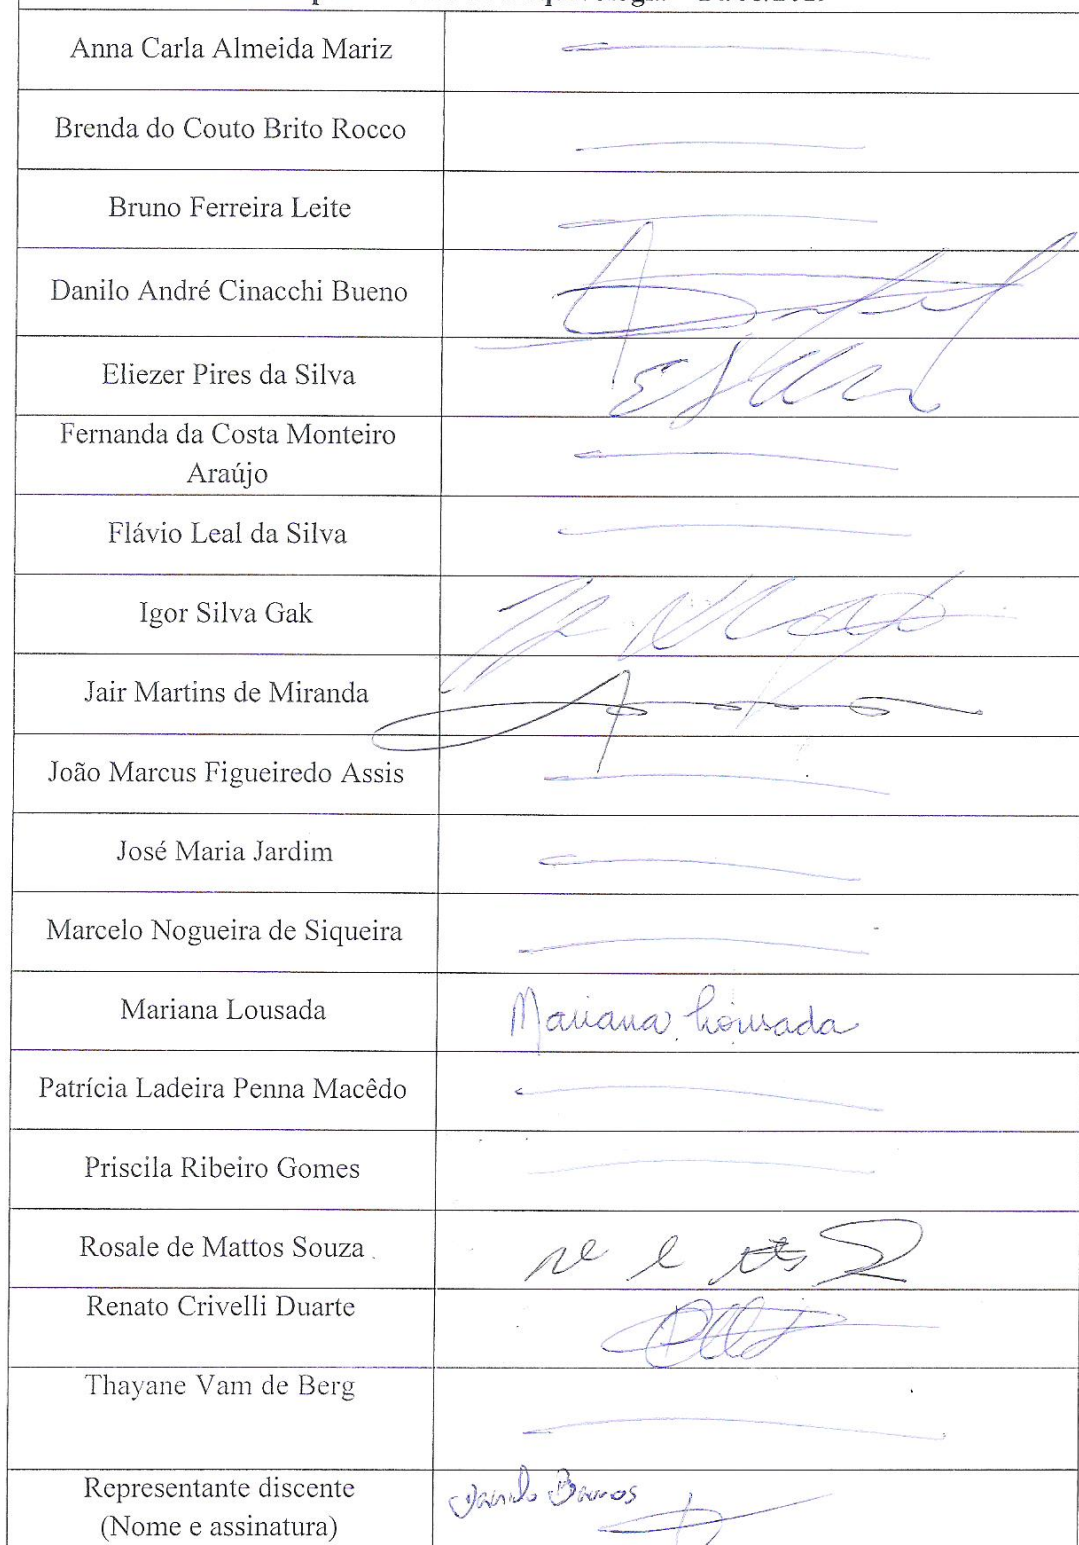 Anna Carla Almeida Mariz
Brenda do Couto Brito Rocco
Bruno Ferreira Leite
Danilo André Cinacchi Bueno
Eliezer Pires da Silva
Fernanda da Costa Monteiro
Araújo
Flávio Leal da Silva
Igor Silva Gak
Jair Martins de Miranda
João Marcus Figueiredo Assis
José Maria Jardim
Marcelo Nogueira de Siqueira
Mariana Lousada Mariana Lousada
Patrícia Ladeira Penna Macêdo
Priscila Ribeiro Gomes
Rosale de Mattos Souza
Renato Crivelli Duarte
Thayane Vam de Berg
Representante discente Danilo Barros
(Nome e assinatura)